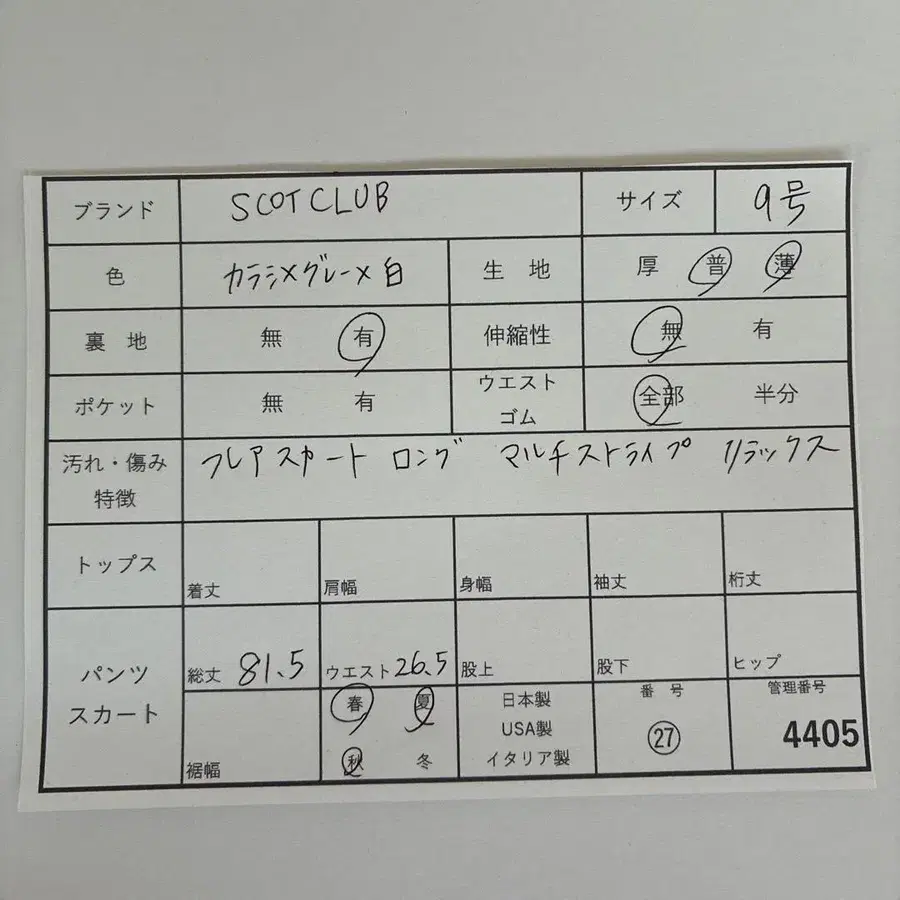 ブランド SCOT CLUB サイズ 9号
色 カラシ×グレー×白 生 地 厚 普 薄
裏 地 無 有 伸縮性 無 有
ポケット 無 有 ウエスト ゴム 全部 半分
汚れ・傷み 特徴 フレアスカート ロング マルチストライプ リラックス
トップス 着丈 肩幅 身幅 袖丈 裄丈
パンツ スカート 総丈 81.5 ウエスト 26.5 股上 股下 ヒップ
裾幅 春 夏 秋 冬 日本製 USA製 イタリア製 番 号 ㉗ 管理番号 4405